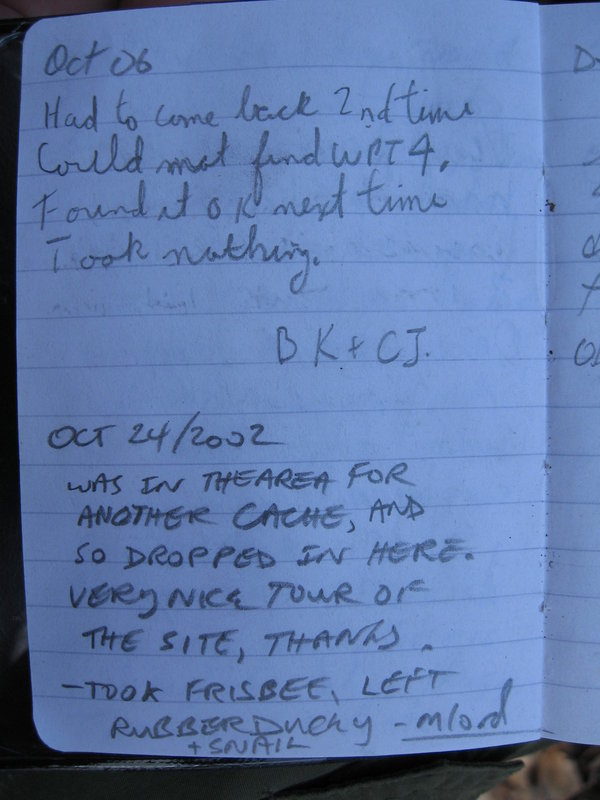 Oct 06
Had to come back 2nd time
Could not find WPT 4.
Found it OK next time
Took nothing.
BK + CJ.
OCT 24/2002
WAS IN THE AREA FOR
ANOTHER CACHE, AND
SO DROPPED IN HERE.
VERY NICE TOUR OF
THE SITE, THANKS.
-TOOK FRISBEE, LEFT
RUBBER DUCKY - m/ord
+ SNAIL